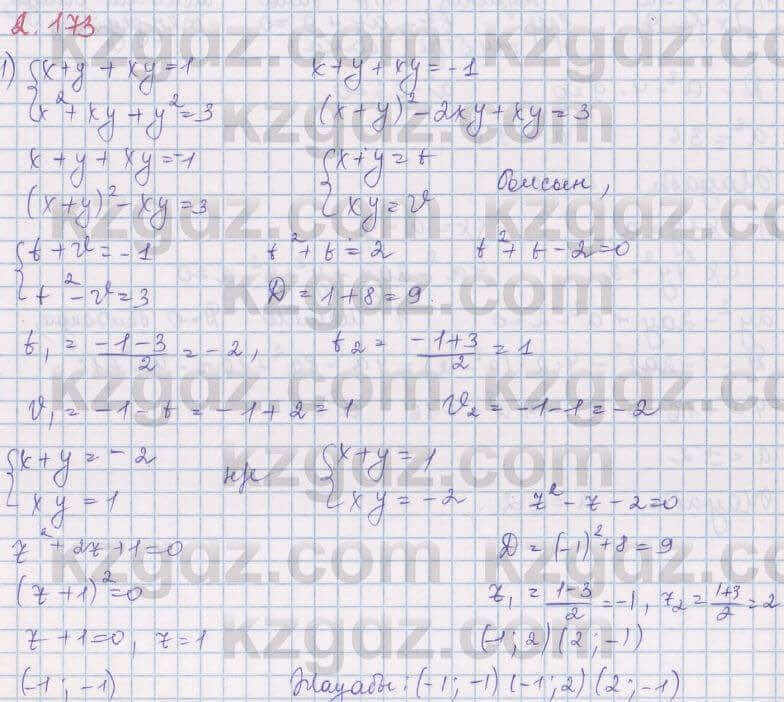 2.173
1) { x+y+xy=1    x+y+xy=-1
x²+xy+y²=3    (x+y)²-2xy+xy=3
x+y+xy=-1    { x+y=t
(x+y)²-xy=3    xy=v    болсын,
{ t+v=-1    t²+t=2    t²+t-2=0
t²-v=3    D=1+8=9.
t₁ = (-1-3)/2 = -2,    t₂ = (-1+3)/2 = 1
v₁ = -1-t = -1+2 = 1    v₂ = -1-1 = -2
{ x+y=-2    { x+y=1
xy=1    xy=-2    z²-z-2=0
z²+2z+1=0    D=(-1)²+8=9
(z+1)²=0    z₁ = (1-3)/2 = -1, z₂ = (1+3)/2 = 2
z+1=0, z=1    (-1; 2) (2; -1)
(-1; -1)    Жауабы: (-1; -1) (-1; 2) (2; -1)
kzgdz.com